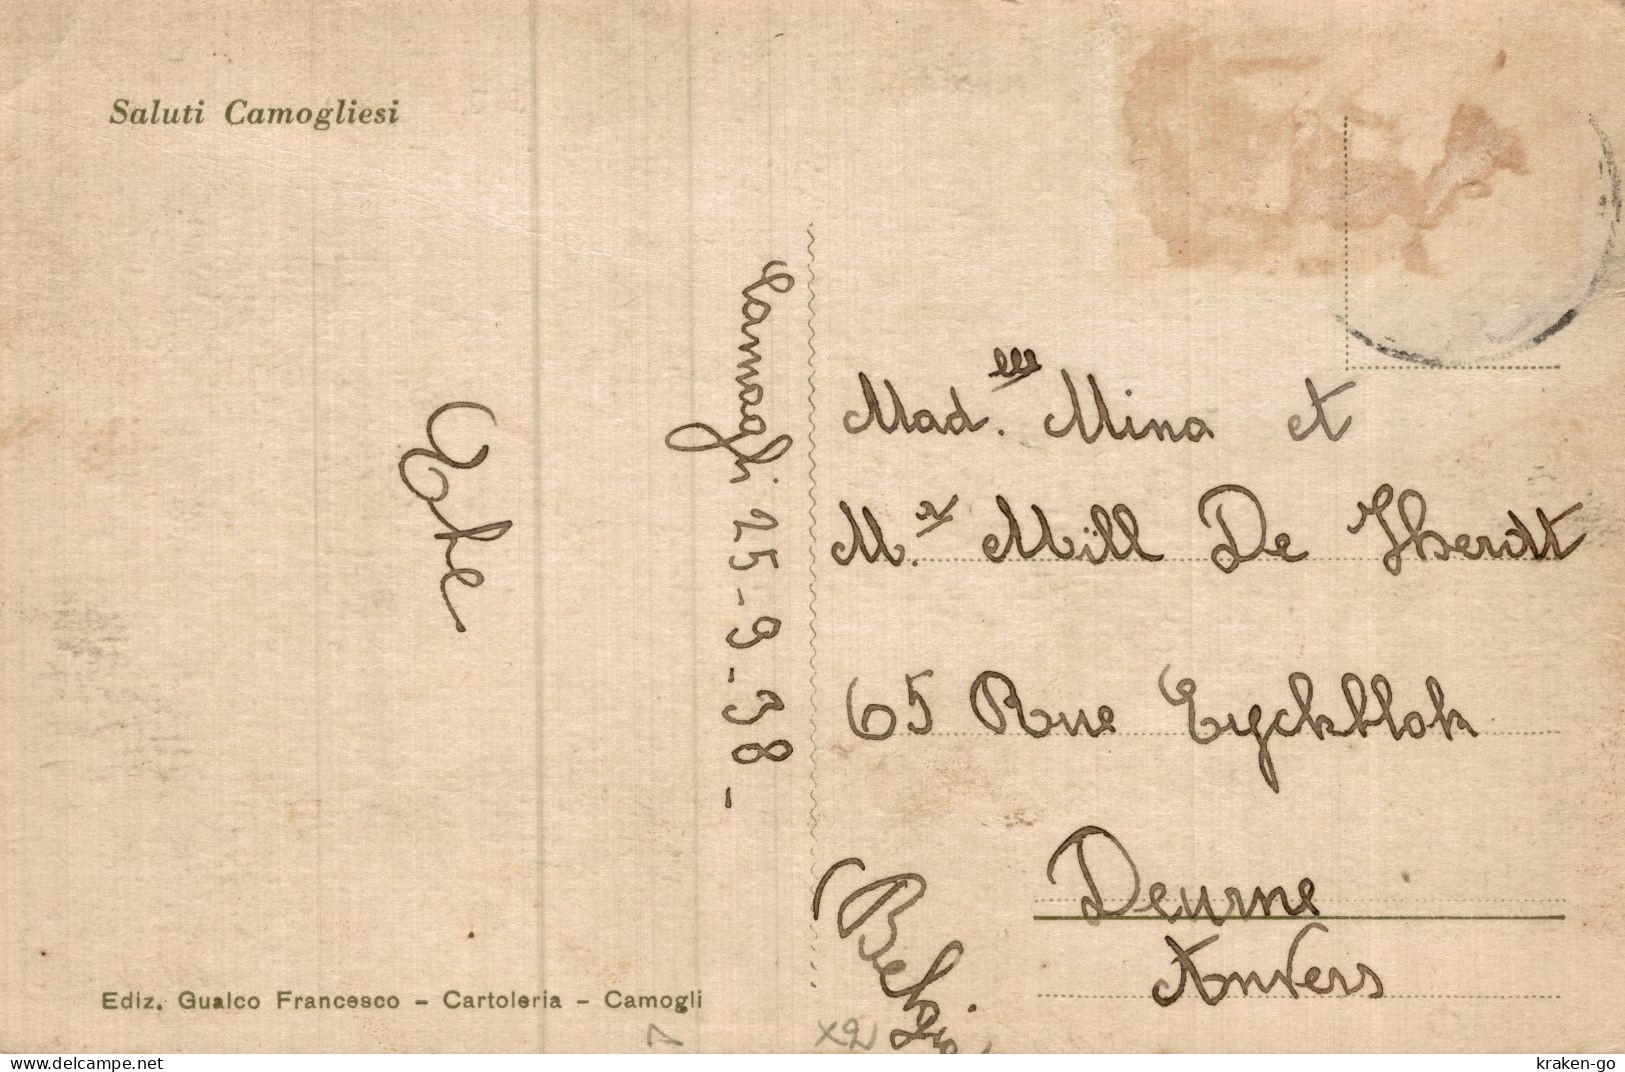 Saluti Camogliesi
Camogli 25-9-38-
Mad.lle Mina et
M.r Mill De
65 Rue Eyckblok
Deurne
Anvers
(Belgio
Ediz. Gualco Francesco - Cartoleria - Camogli
1
X2
https://www.delcampe.net
kraken-go